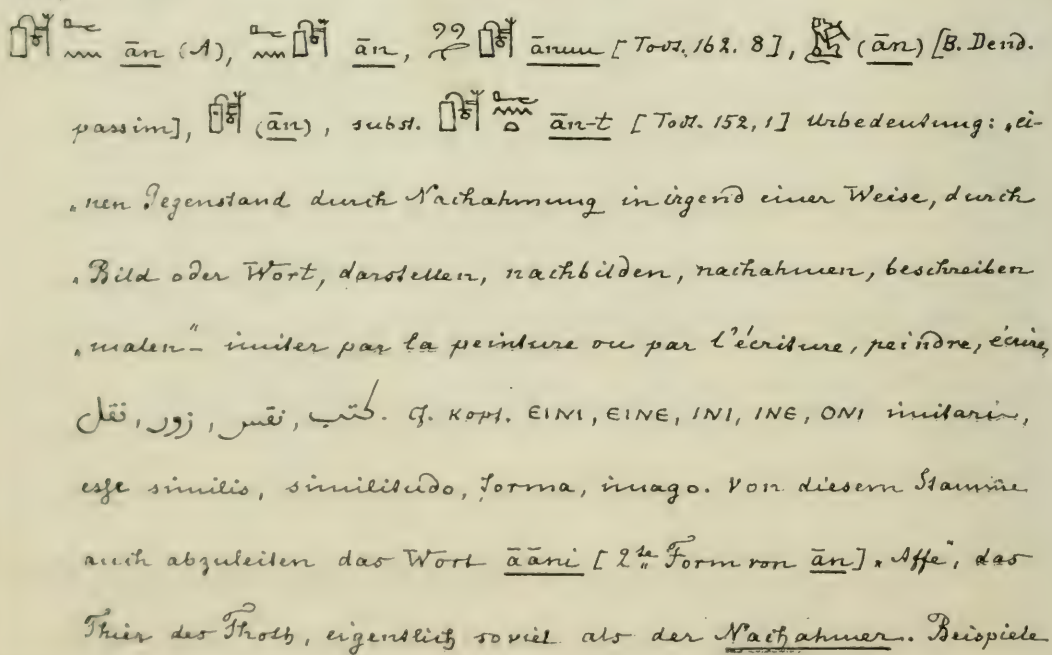 ān (A), ān, ānuu [Todt. 162. 8], (ān) [B. Dend.
passim], (ān), subst. ān-t [Todt. 152, 1] Urbedeutung: „ei-
„nen Gegenstand durch Nachahmung in irgend einer Weise, durch
„Bild oder Wort, darstellen, nachbilden, nachahmen, beschreiben
„malen“ — imiter par la peinture ou par l'écriture, peindre, écrire,
كتب, نقس, زور, نقل. cf. kopt. ⲉⲓⲛⲓ, ⲉⲓⲛⲉ, ⲓⲛⲓ, ⲓⲛⲉ, ⲟⲛⲓ imitari,
esse similis, similitudo, forma, imago. Von diesem Stamme
auch abzuleiten das Wort āāni [2te Form von ān] „Affe“, das
Thier des Thoth, eigentlich soviel als der Nachahmer. Beispiele